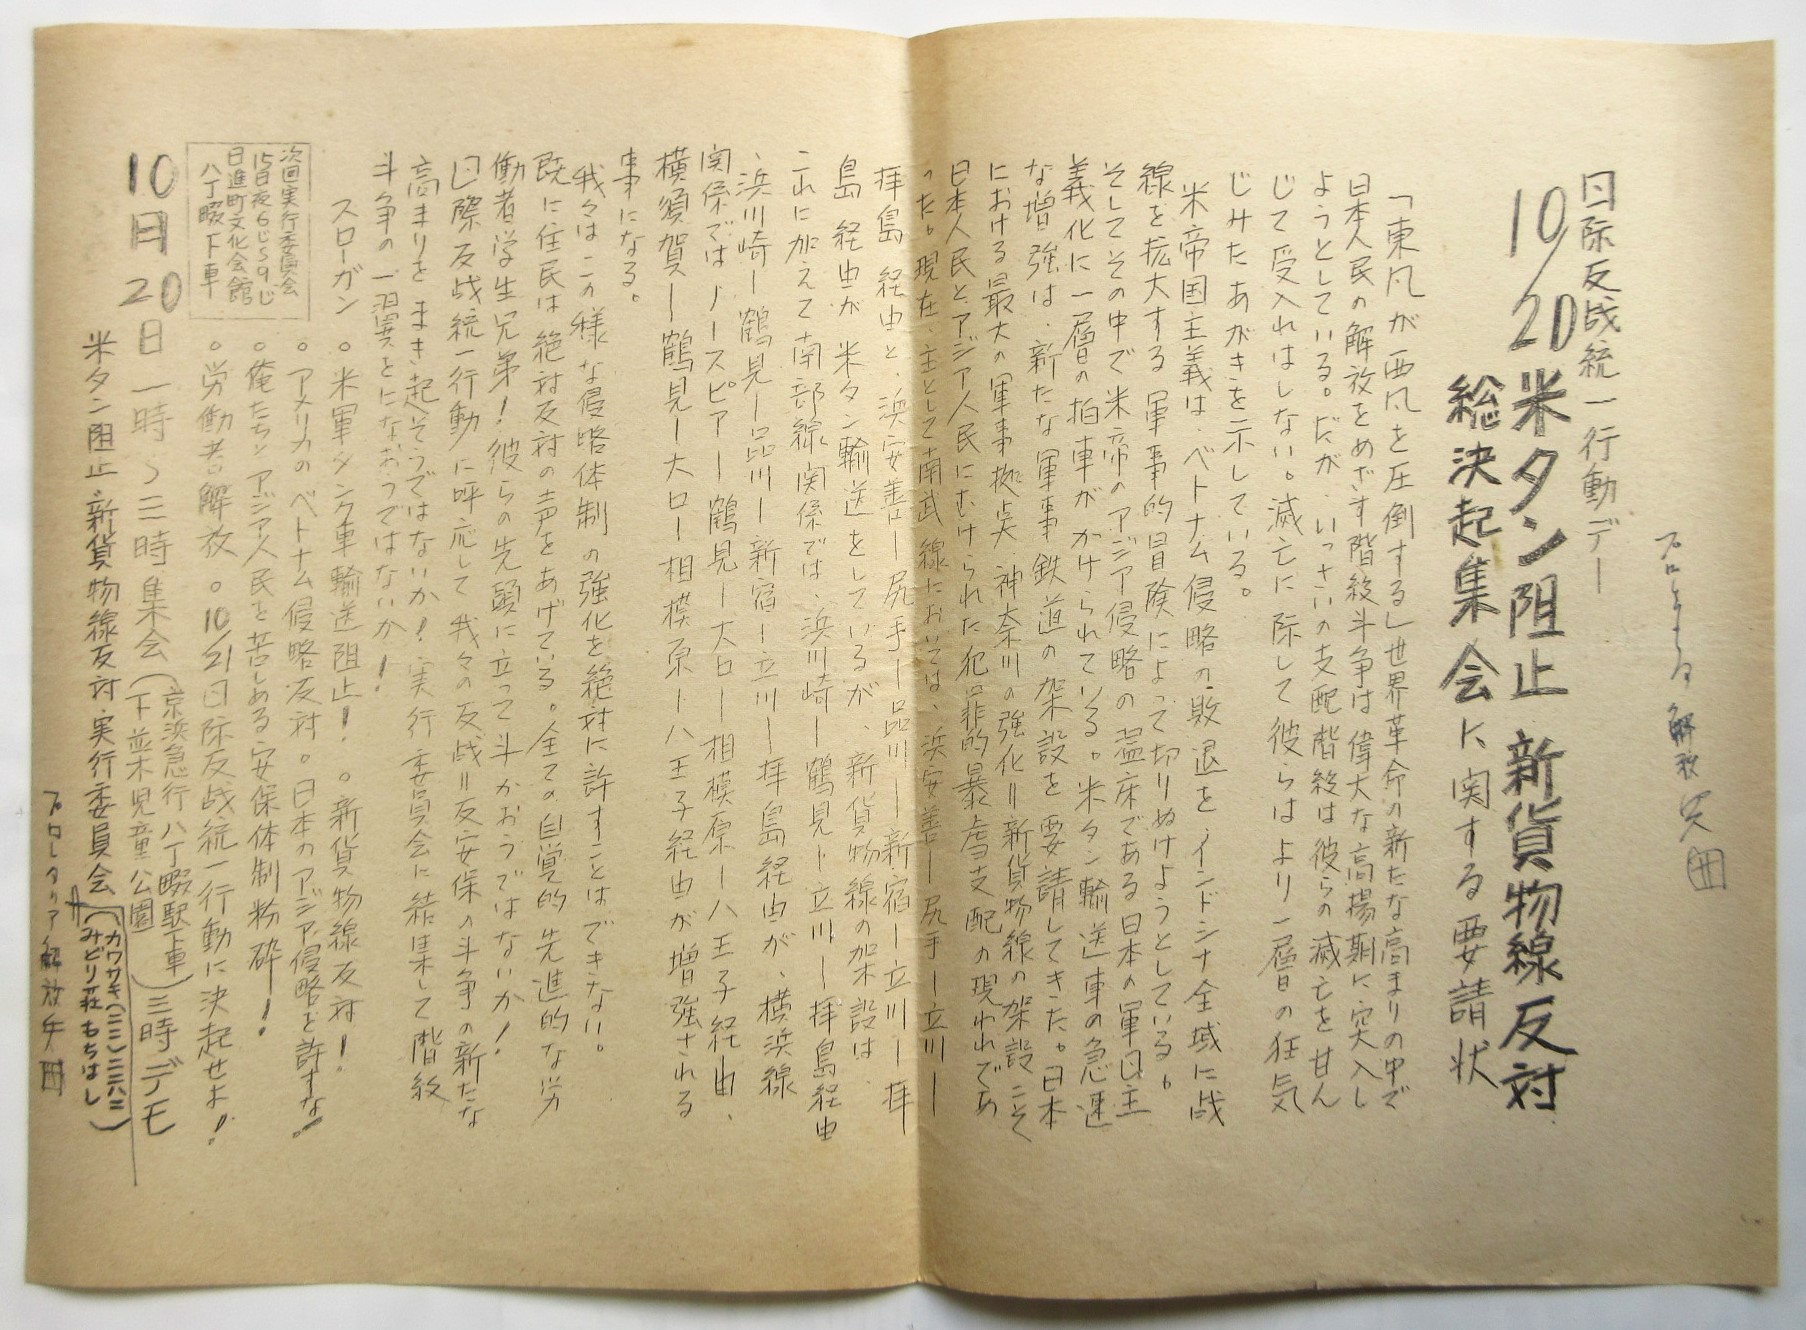 プロレタリア解放
国际反战統一行動デー
10/20米タン阻止 新貨物線反対
総決起集会に関する要請状
「東风が西风を圧倒する」世界革命の新たな高まりの中で
日本人民の解放をめざす階級斗争は偉大な高揚期に突入し
ようとしている。だが、いっさいの支配階級は彼らの滅亡を甘ん
じて受入れはしない。滅亡に際して彼らはより一層の狂気
じみたあがきを示している。
米帝国主義は、ベトナム侵略の敗退をインドシナ全域に战
線を拡大する軍事的冒険によって切りぬけようとしている。
そしてその中で米帝のアジア侵略の温床である日本の軍国主
義化に一層の拍車がかけられている。米タン輸送車の急速
な増強は、新たな軍事鉄道の架設を要請してきた。日本
における最大の軍事拠点、神奈川の強化=新貨物線の架設こそ
日本人民とアジア人民にむけられた犯罪的暴虐支配の現われであ
った。現在、主として南武線においては、浜安善ー尻手ー立川ー
拝島経由と、浜安善ー尻手ー品川ー新宿ー立川ー拝
島経由が米タン輸送をしているが、新貨物線の架設は、
これに加えて南部線関係では、浜川崎ー鶴見ー立川ー拝島経由
、浜川崎ー鶴見ー品川ー新宿ー立川ー拝島経由が、横浜線
関係ではノースピアー鶴見ー大口ー相模原ー八王子経由、
横須賀ー鶴見ー大口ー相模原ー八王子経由が増強される
事になる。
我々はこの様な侵略体制の強化を絶対に許すことはできない。
既に住民は絶対反対の声をあげている。全ての自覚的先進的な労
働者学生兄弟!彼らの先頭に立って斗かおうではないか!
国際反战統一行動に呼応して我々の反战=反安保の斗争の新たな
高まりをまき起そうではないか!実行委員会に結集して階級
斗争の一翼をになおうではないか!
スローガン 。米軍タンク車輸送阻止! 。新貨物線反対!
。アメリカのベトナム侵略反対。日本のアジア侵略を許すな!
。俺たちとアジア人民を苦しめる安保体制粉砕!
。労働者解放 。10/21国际反战統一行動に決起せよ!
次回実行委員会
15日夜6じ〜9じ
日進町文化会館
八丁畷下車
10月20日一時〜三時集会(京浜急行八丁畷駅下車 下並木児童公園)三時デモ
米タン阻止新貨物線反対実行委員会(カワサキ(二三)二二六三 みどり荘もちはし)
プロレタリア解放